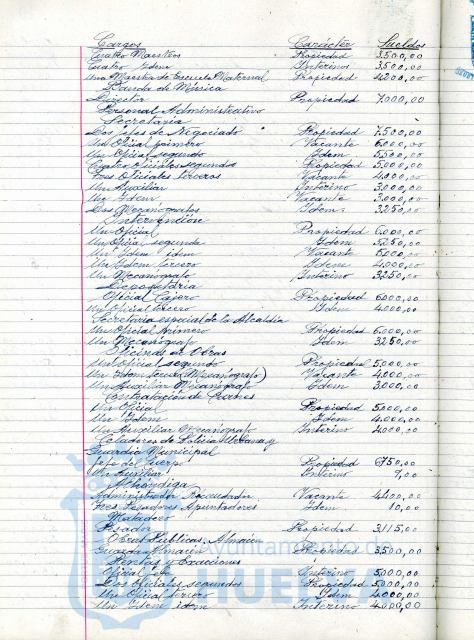 Cargos Carácter Sueldos
Cuatro Maestros Propiedad 3,500,00
Cuatro Idem Interinos 3,500,00
Una Maestra de Escuela Maternal Propiedad 4200,00
Banda de Música
Director Propiedad 7,000,00
Personal Administrativo
Secretaria
Dos Jefes de Negociado Propiedad 7,500,00
Un Oficial primero Vacante 6,000,00
Un Oficial segundo Idem 5,500,00
Cuatro Oficiales segundos Propiedad 5,000,00
Tres Oficiales terceros Vacante 4,000,00
Un Auxiliar Interino 3,000,00
Un Idem Vacante 3,000,00
Dos Mecanógrafos Idem. 3,250,00
Intervención
Un Oficial Propiedad 6,000,00
Un Oficial segundo Idem 5,250,00
Un Idem idem Vacante 5,000,00
Un Idem tercero Idem 4,000,00
Un Mecanógrafo Interino 3250,00
Depositaria
Oficial Cajero Propiedad 6000,00
Un Oficial tercero Idem 4000,00
Secretaria especial de la Alcaldia
Un Oficial Primero Propiedad 6,000,00
Un Mecanógrafo Idem 3250,00
Oficina de Obras
Un Oficial segundo Propiedad 5,000,00
Un Idem tercero (Mecanógrafo) Vacante 4,000,00
Un Auxiliar Mecanógrafo Idem 3,000,00
Contratación de Carnes
Un Oficial Propiedad 5,000,00
Un Idem Idem 4,000,00
Un Auxiliar Mecanógrafo Interino 2000,00
Celadores de Policia Urbana y
Guardia Municipal
Jefe del Cuerpo Propiedad 6750,00
Un Auxiliar Interino 7,00
Alhóndiga
Administrador Recaudador Vacante 4,400,00
Tres Pesadores Apuntadores Idem 10,00
Matadero
Pesador Propiedad 3,115,00
Obras Públicas. Almacén
Guarda Almacén Propiedad 3,500,00
Rentas y Exacciones
Oficial Jefe Interino 5,000,00
Dos Oficiales segundos Propiedad 5,000,00
Un Oficial tercero Idem 4,000,00
Un Idem idem Interino 4,000,00
Ayuntamiento de
HUELVA